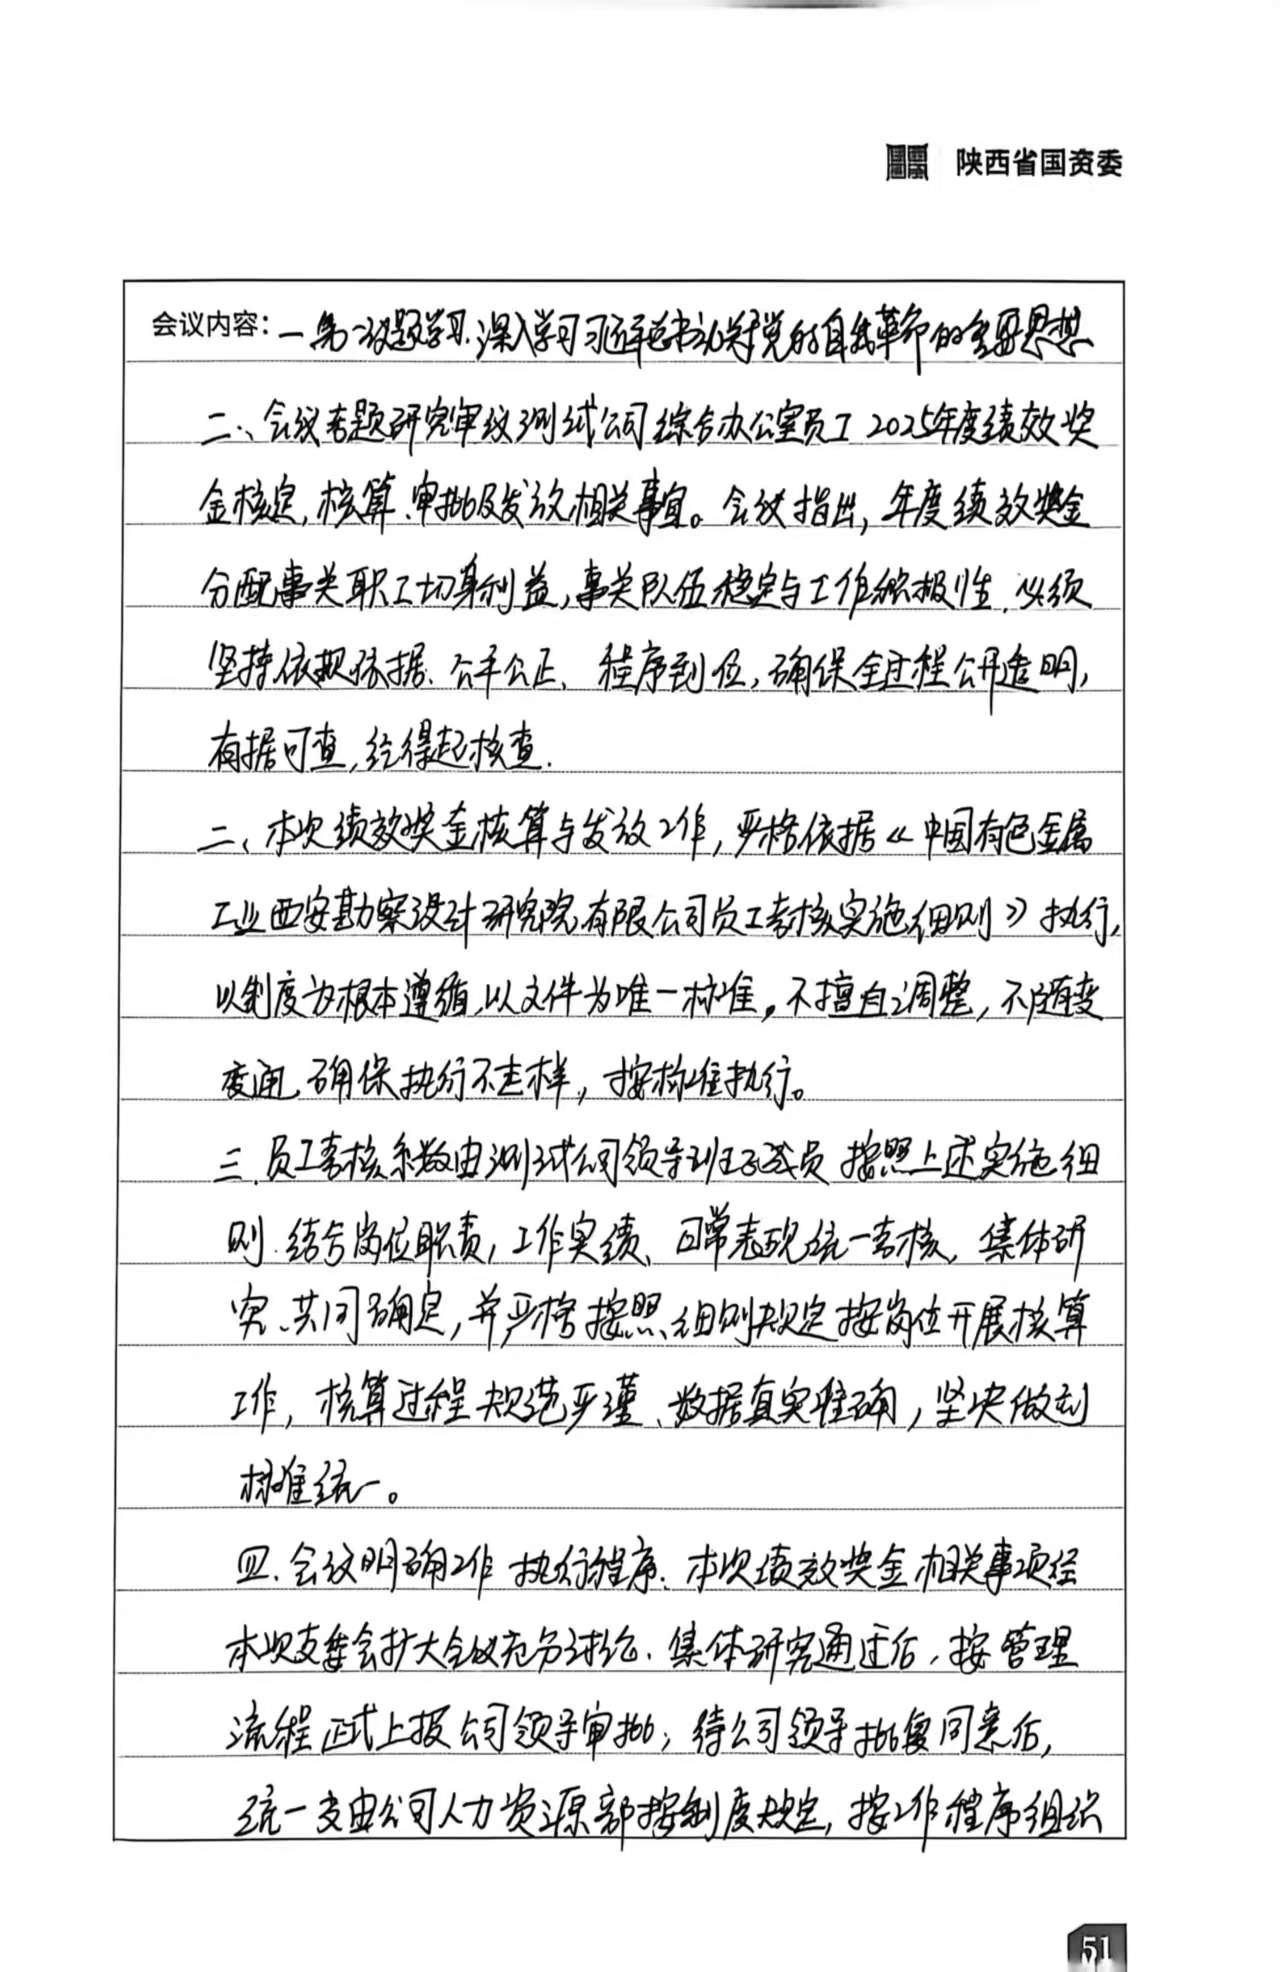 陕西省国资委
会议内容：一.第一议题学习.深入学习习近平总书记关于党的自我革命的重要思想
二.、会议专题研究审议测试公司综合办公室员工2025年度绩效奖
金核定,核算、审批及发放相关事宜。会议指出,年度绩效奖金
分配事关职工切身利益,事关队伍稳定与工作积极性.必须
坚持依规依据.公平公正、程序到位,确保全过程公开透明,
有据可查,经得起核查.
二、本次绩效奖金核算与发放工作,严格依据《中国有色金属
工业西安勘察设计研究院有限公司员工考核实施细则》执行,
以制度为根本遵循,以文件为唯一标准。不擅自调整,不随变
变通,确保执行不走样,按标准执行。
三.员工考核系数由测试公司领导班子成员按照上述实施细
则.结合岗位职责,工作实绩、日常表现统一考核,集体研
究、共同确定,并严格按照细则规定按岗位开展核算
工作,核算过程规范严谨、数据真实准确,坚决做到
标准统一。
四.会议明确工作执行程序.本次绩效奖金相关事项经
本次支委会扩大会议充分讨论.集体研究通过后,按管理
流程正式上报公司领导审批;待公司领导批复同意后,
统一交由公司人力资源部按制度规定,按工作程序组织
51